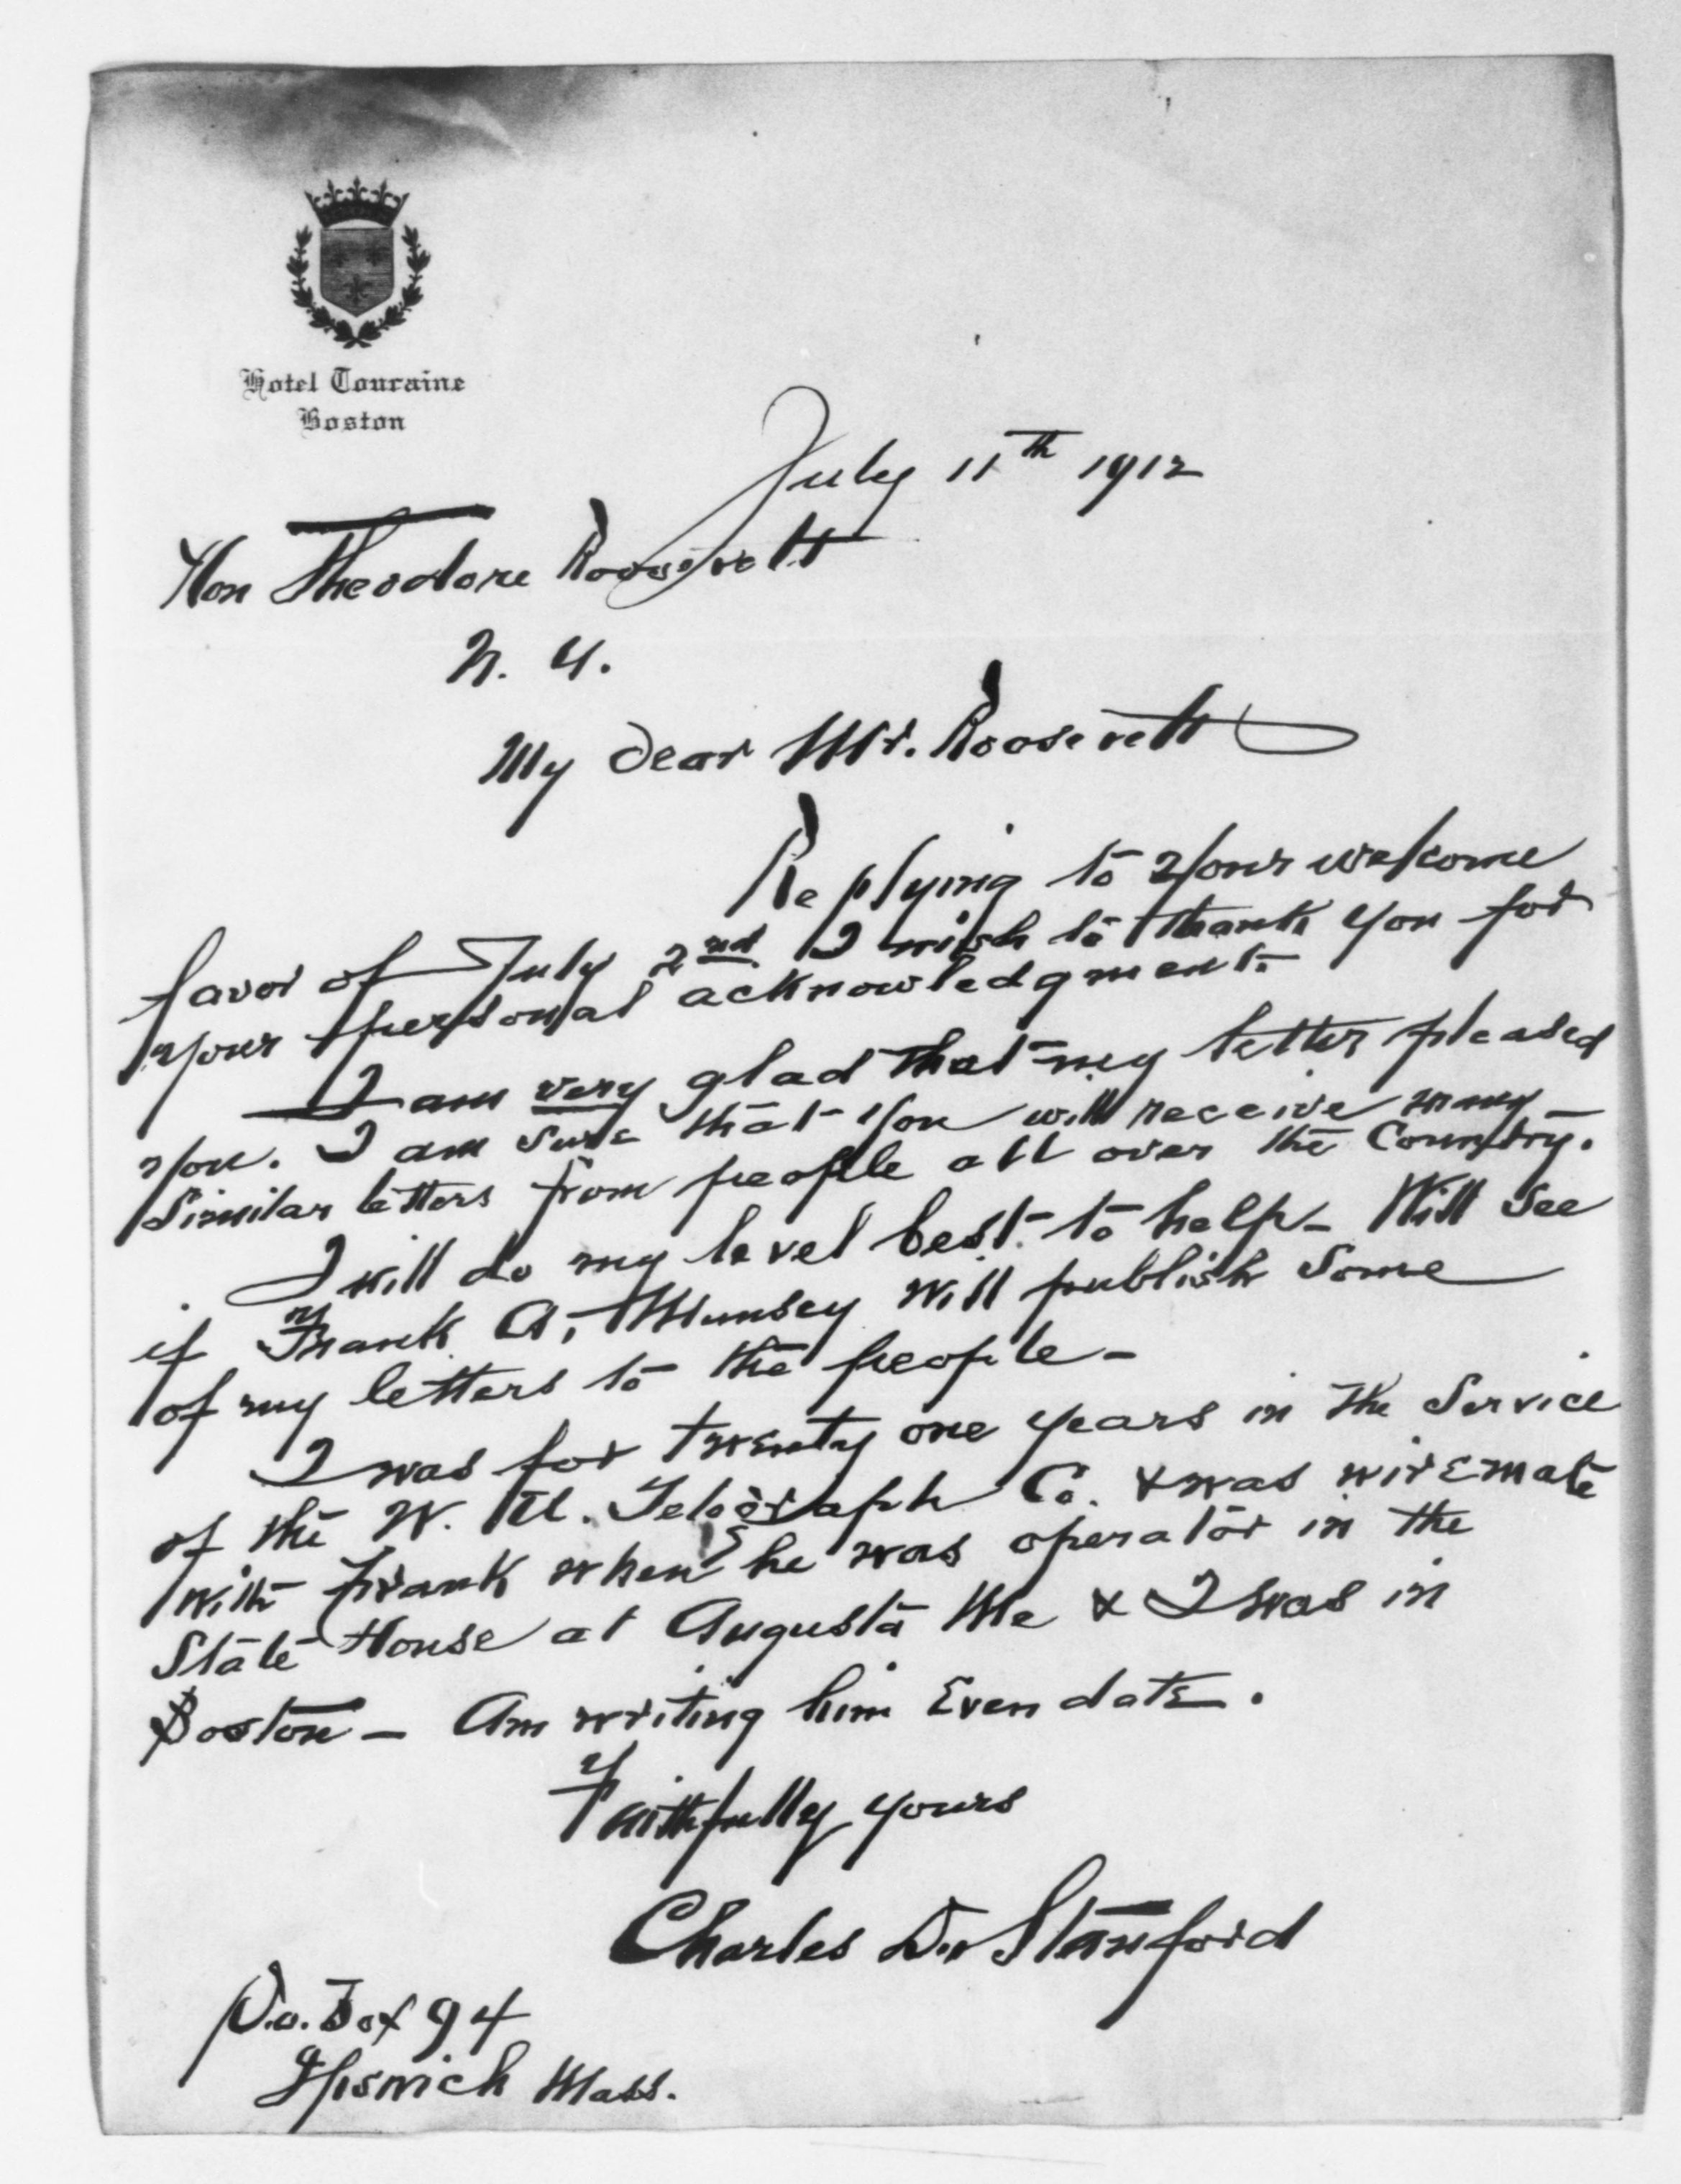 Hotel Touraine
Boston
July 11th 1912
Hon Theodore Roosevelt
N. Y.
My dear Mr. Roosevelt
Replying to your welcome
favor of July 2nd I wish to thank you for
your personal acknowledgment.
I am very glad that my letter pleased
you. I am sure that you will receive many
similar letters from people all over the Country.
I will do my level best to help - Will see
if Frank A. Munsey will publish some
of my letters to the people -
I was for twenty one years in the service
of the W. U. Telegraph Co. & was wiremate
with Frank when he was operator in the
State House at Augusta Me & I was in
Boston - Am writing him even date.
Faithfully yours
Charles D. Stanford
P.o. Box 94
Ipswich Mass.